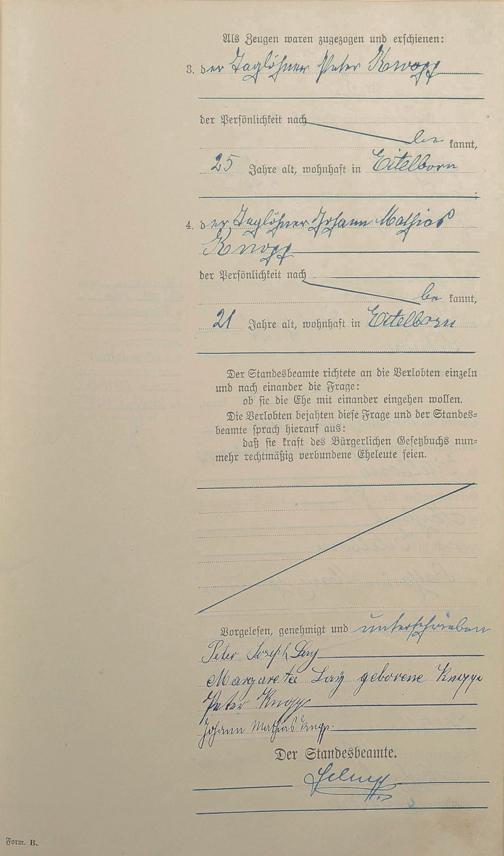 Als Zeugen waren zugezogen und erschienen:
3. der Taglöhner Peter Knopp
der Persönlichkeit nach
be kannt,
25 Jahre alt, wohnhaft in Eitelborn
4. der Taglöhner Johann Mathias
Knopp
der Persönlichkeit nach
be kannt,
21 Jahre alt, wohnhaft in Eitelborn
Der Standesbeamte richtete an die Verlobten einzeln
und nach einander die Frage:
ob sie die Ehe mit einander eingehen wollen.
Die Verlobten bejahten diese Frage und der Standes=
beamte sprach hierauf aus:
daß sie kraft des Bürgerlichen Gesetzbuchs nun=
mehr rechtmäßig verbundene Eheleute seien.
Vorgelesen, genehmigt und unterschrieben
Peter Joseph Lay
Margareta Lay geborene Knopp
Peter Knopp
Johann Mathias Knopp
Der Standesbeamte.
Form. B.